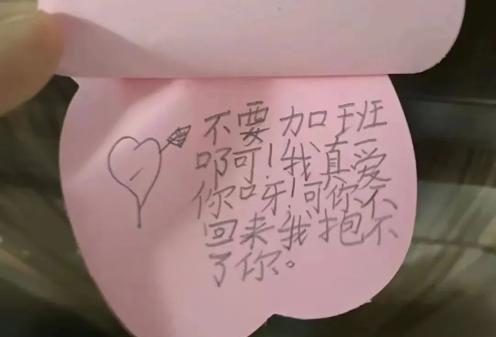 不要加班
啊可!我真爱
你呀!可你不
回来我抱不
了你。